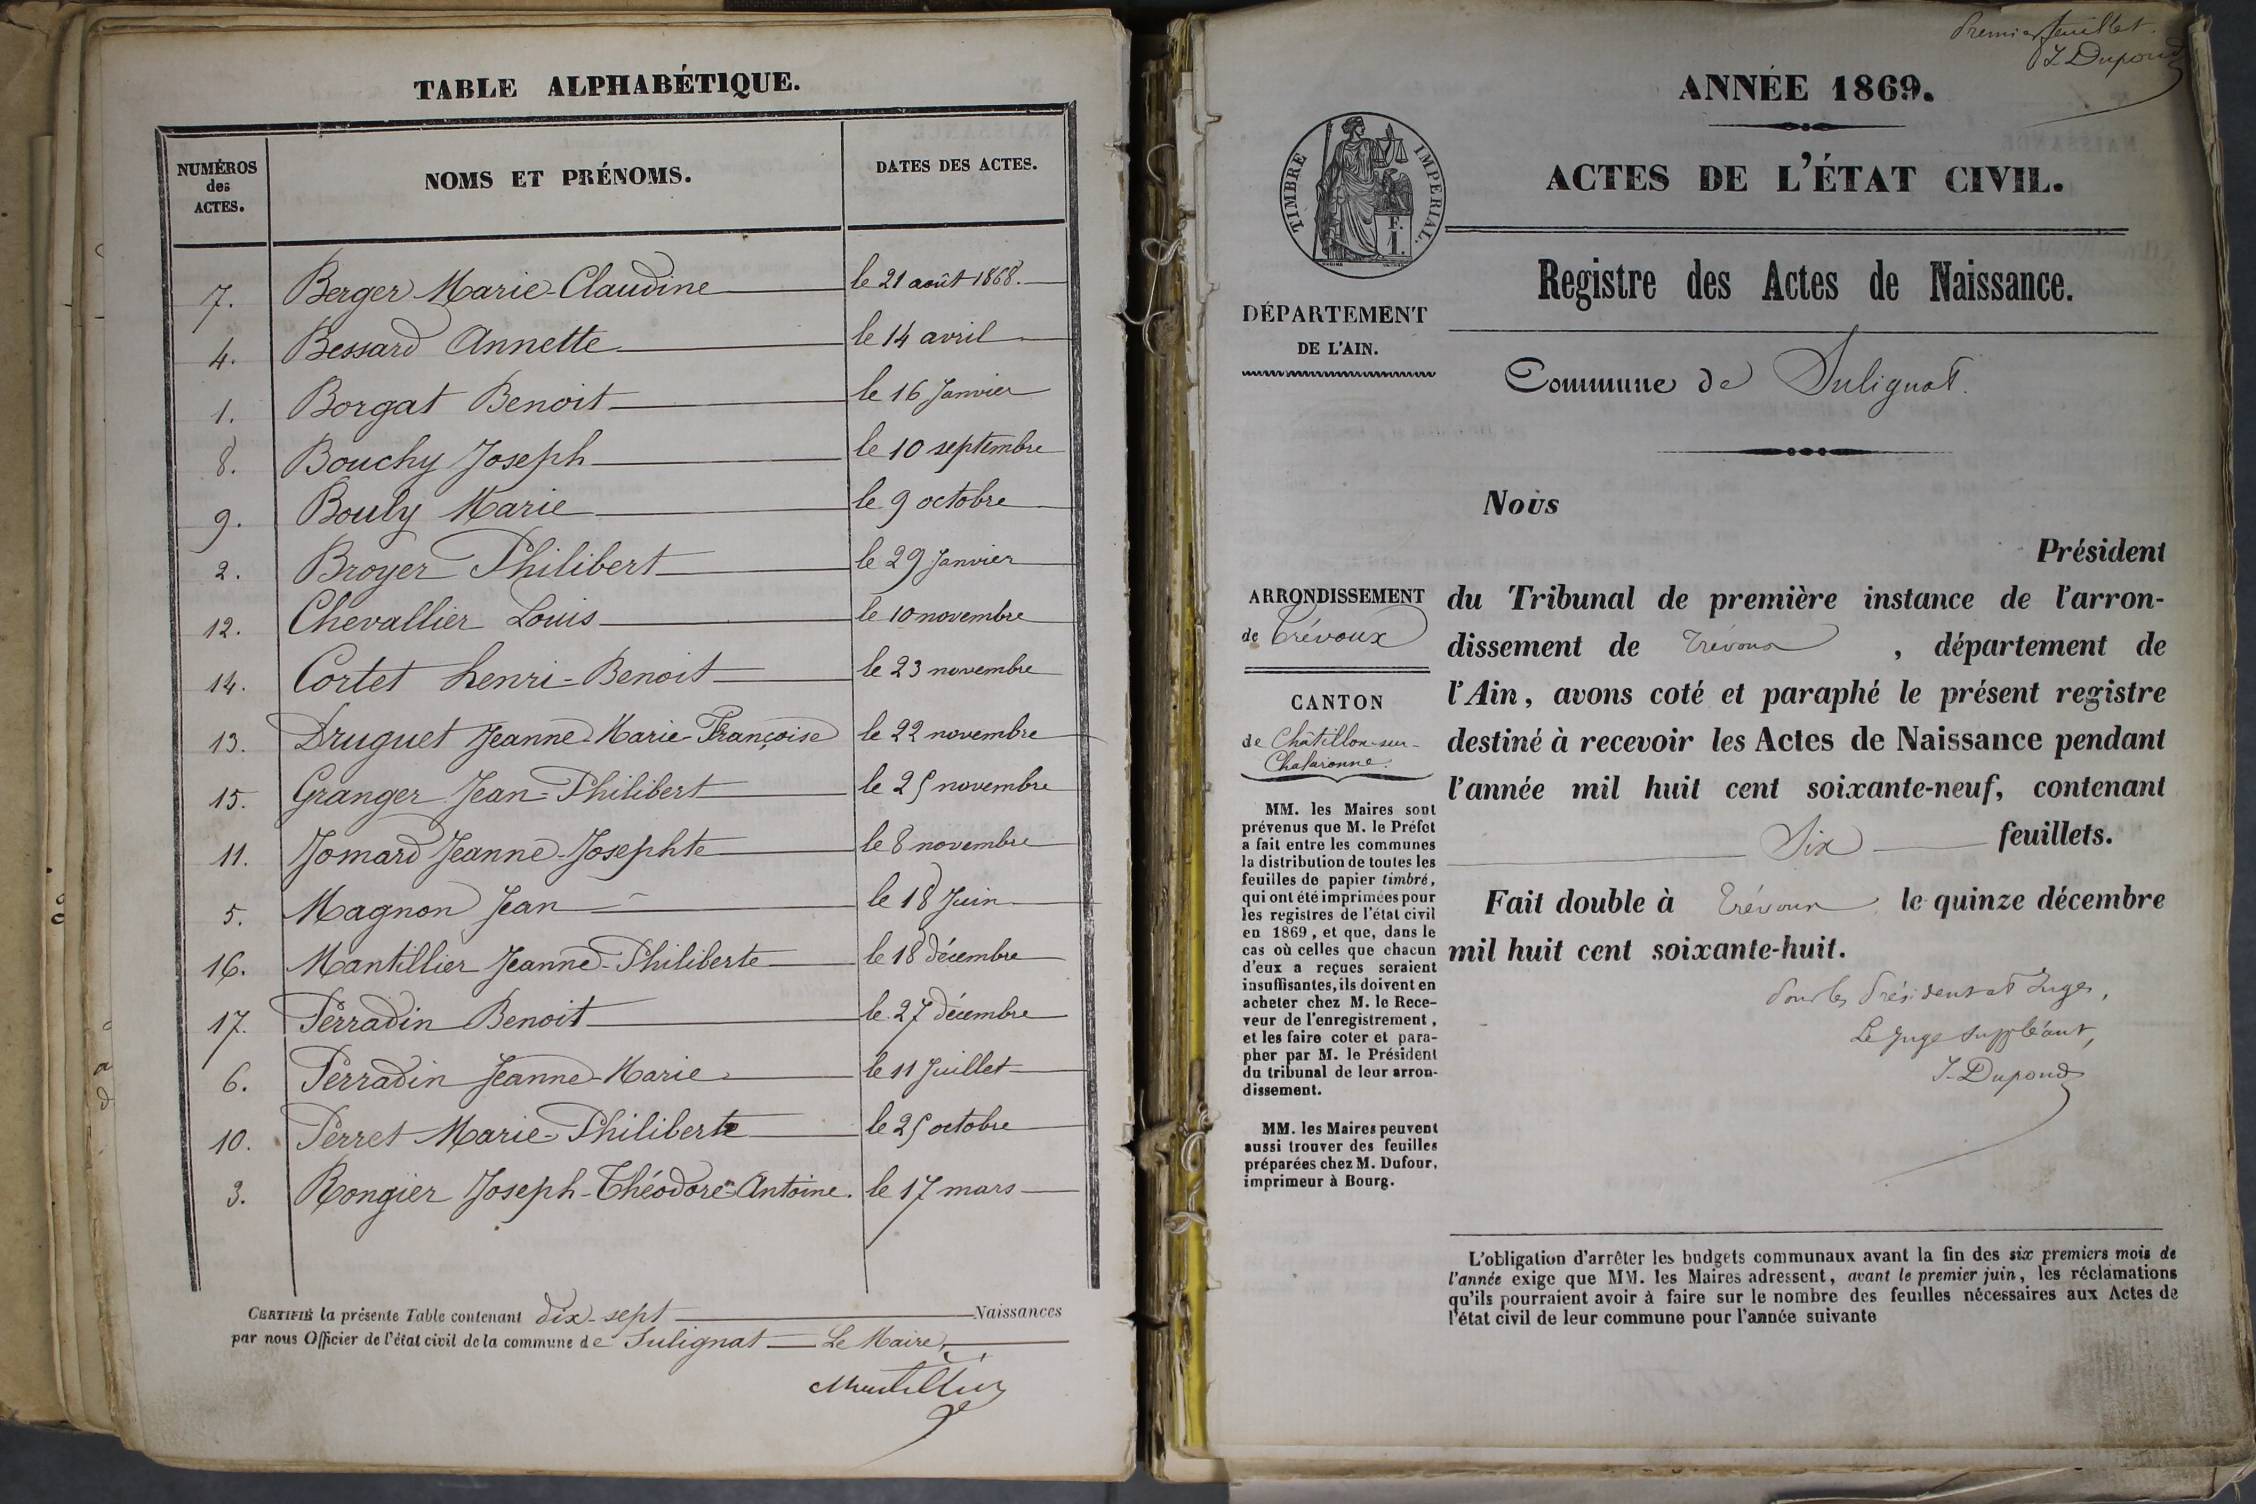 TABLE ALPHABÉTIQUE.
NUMÉROS des ACTES.
NOMS ET PRÉNOMS.
DATES DES ACTES.
7. Berger Marie-Claudine le 21 août 1868.
4. Bessard Annette le 14 avril
1. Borgat Benoit le 16 Janvier
8. Bouchy Joseph le 10 septembre
9. Bouly Marie le 9 octobre
2. Broyer Philibert le 29 Janvier
12. Chevallier Louis le 10 novembre
14. Cortet henri-Benoit le 23 novembre
13. Druguet Jeanne-Marie-Françoise le 22 novembre
15. Granger Jean-Philibert le 25 novembre
11. Jomard Jeanne-Josephte le 8 novembre
5. Magnon Jean le 18 Juin
16. Mantillier Jeanne-Philiberte le 18 décembre
17. Perradin Benoit le 27 décembre
6. Perradin Jeanne-Marie le 11 Juillet
10. Perret Marie-Philiberte le 25 octobre
3. Rongier Joseph-Théodore-Antoine. le 17 mars
CERTIFIÉ la présente Table contenant dix-sept Naissances
par nous Officier de l'état civil de la commune de Sulignat Le Maire,
Mantillier
Premier feuillet.
J. Dupond
ANNÉE 1869.
TIMBRE IMPERIAL.
F. 1.
ACTES DE L'ÉTAT CIVIL.
Registre des Actes de Naissance.
DÉPARTEMENT
DE L'AIN.
Commune de Sulignat.
ARRONDISSEMENT
de Trévoux
CANTON
de Châtillon-sur-
Chalaronne.
MM. les Maires sont
prévenus que M. le Préfet
a fait entre les communes
la distribution de toutes les
feuilles de papier timbré,
qui ont été imprimées pour
les registres de l'état civil
en 1869, et que, dans le
cas où celles que chacun
d'eux a reçues seraient
insuffisantes, ils doivent en
acheter chez M. le Rece-
veur de l'enregistrement,
et les faire coter et para-
pher par M. le Président
du tribunal de leur arron-
dissement.
MM. les Maires peuvent
aussi trouver des feuilles
préparées chez M. Dufour,
imprimeur à Bourg.
Nous
Président
du Tribunal de première instance de l'arron-
dissement de Trévoux, département de
l'Ain, avons coté et paraphé le présent registre
destiné à recevoir les Actes de Naissance pendant
l'année mil huit cent soixante-neuf, contenant
Six feuillets.
Fait double à Trévoux le quinze décembre
mil huit cent soixante-huit.
Pour les Président et Juges,
Le Juge suppléant,
J. Dupond
L'obligation d'arrêter les budgets communaux avant la fin des six premiers mois de
l'année exige que MM. les Maires adressent, avant le premier juin, les réclamations
qu'ils pourraient avoir à faire sur le nombre des feuilles nécessaires aux Actes de
l'état civil de leur commune pour l'année suivante